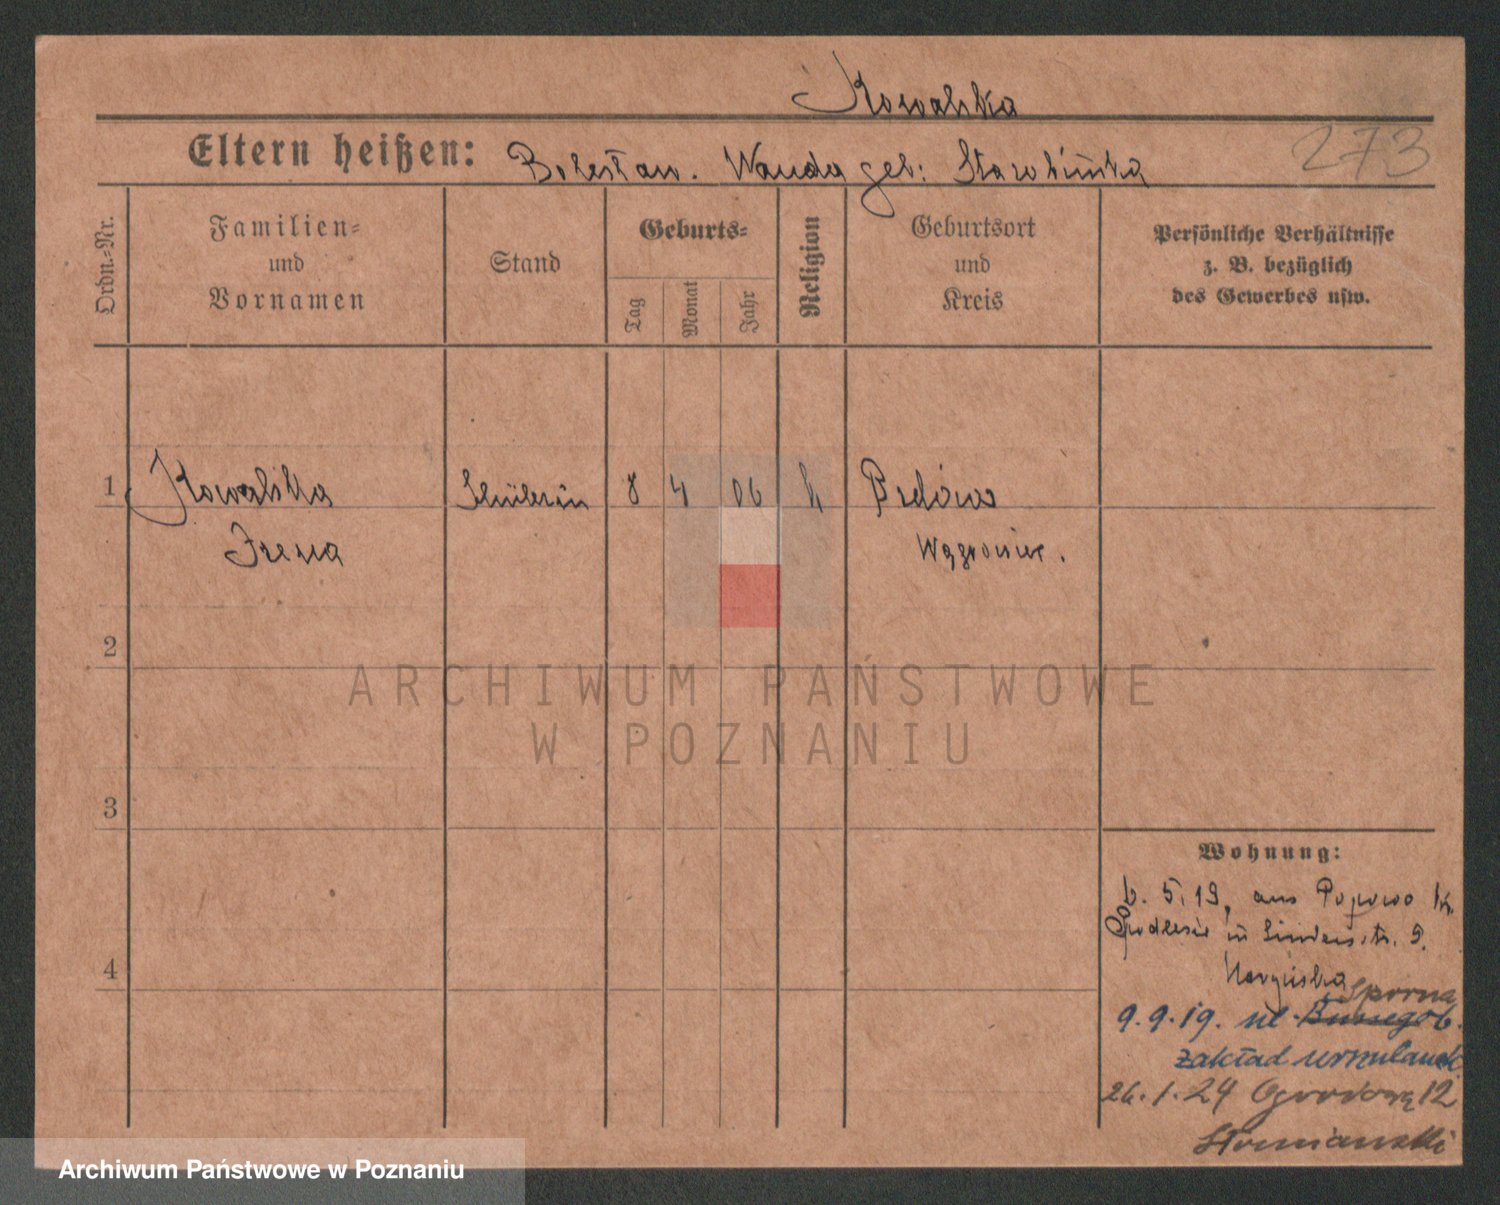 Kowalska
273
Eltern heißen: Bolesław. Wanda geb:
Ordn.-Nr.
Familien-
und
Vornamen
Stand
Geburts-
Tag
Monat
Jahr
Religion
Geburtsort
und
Kreis
Persönliche Verhältnisse
z. B. bezüglich
des Gewerbes usw.
1 Kowalska Schülerin 8 4 06 k
Irena Wągrowiec.
2
3
4
ARCHIWUM PAŃSTWOWE
W POZNANIU
Wohnung:
6. 5. 19, aus Popowo K.
Podlesie in Lindenstr. 9.
Sporna
9.9.19. ul.
zakład
26.1.24 Ogrodowa 12
Słomianowski
Archiwum Państwowe w Poznaniu